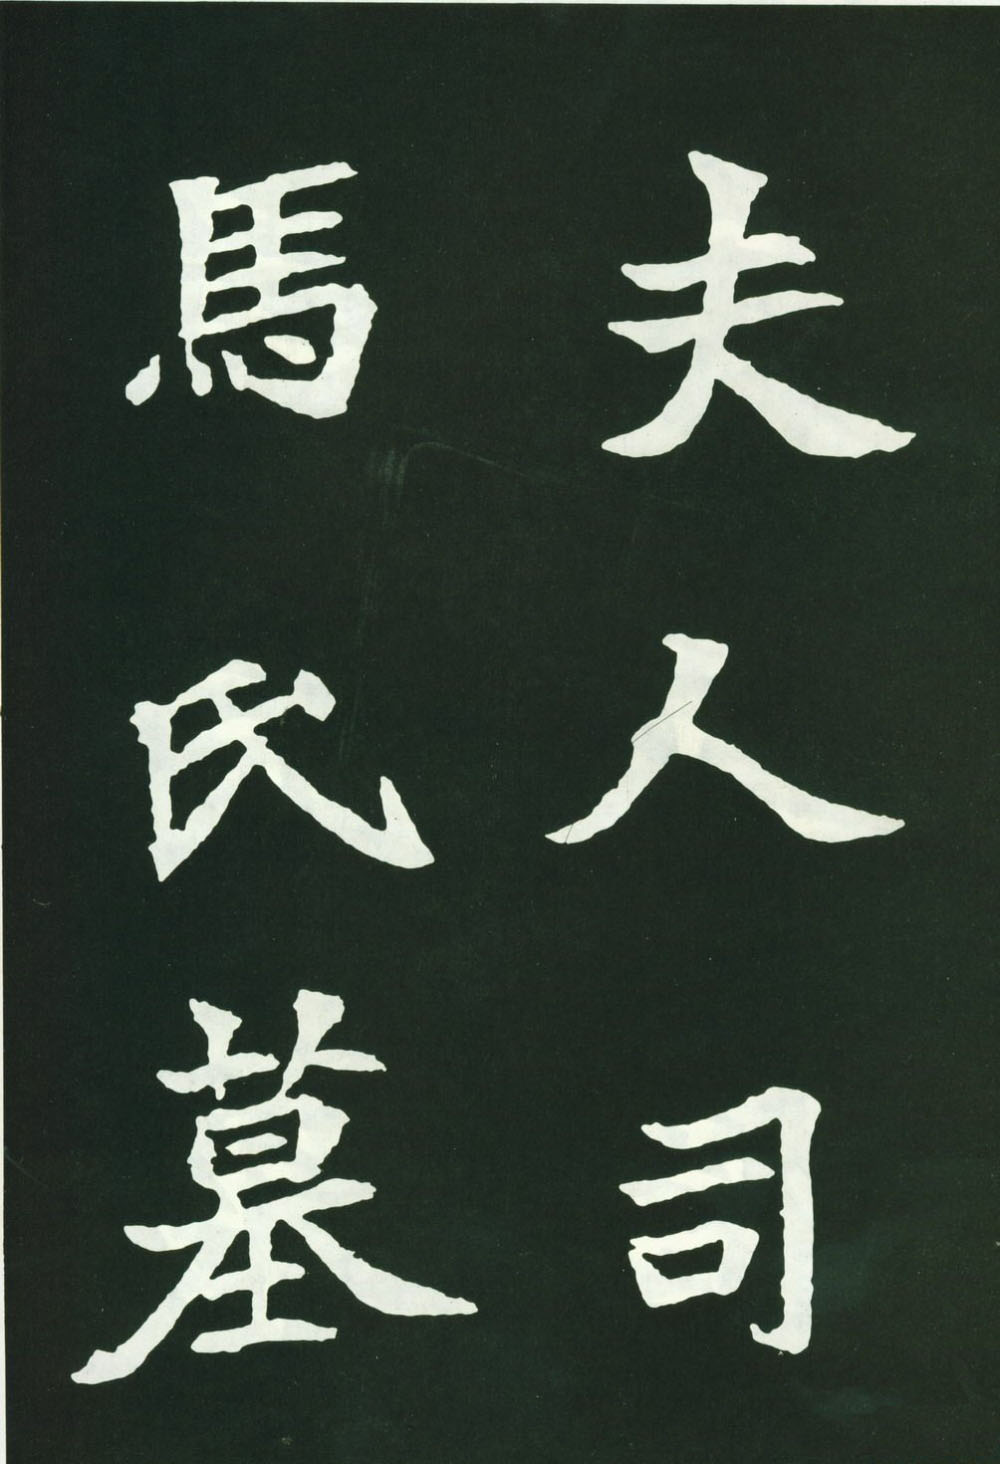 夫人司
馬氏墓